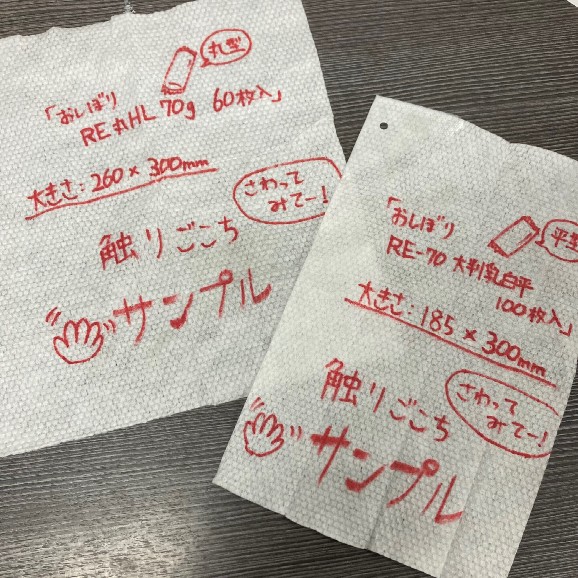 丸型
「おしぼり
RE丸HL 70g 60枚入」
大きさ:260×300mm
さわって
みてー!
触りごこち
サンプル
平型
「おしぼり
RE-70 大判乳白平
100枚入」
大きさ:185×300mm
さわって
みてー!
触りごこち
サンプル